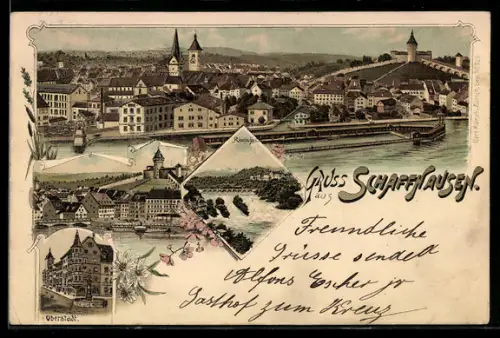 Rheinfall
Gruss
aus
SCHAFFHAUSEN.
Freundliche
Grüsse sendet
Alfons Escher jr
Gasthof zum Kreuz
Oberstadt.